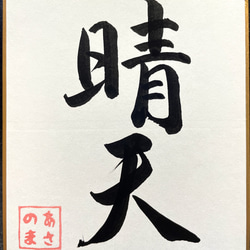 晴天
あさのま